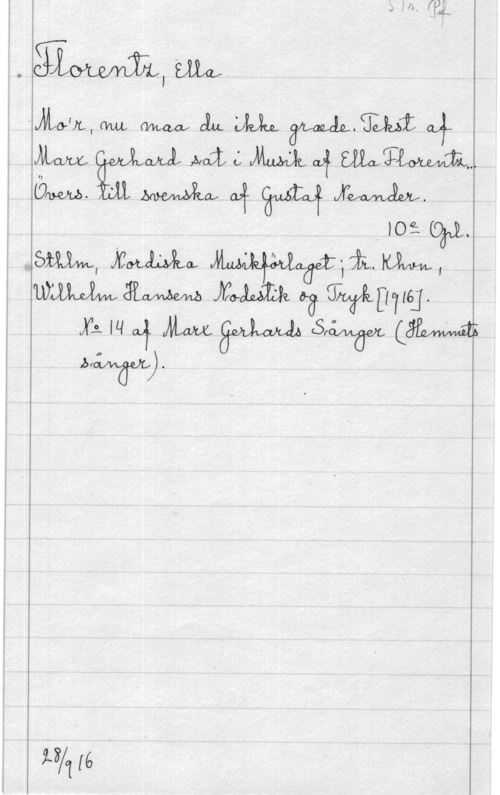 S 1 n. Pf
Florentz, Ella
Mo'r, nu maa du ikke græde. Tekst af
Marx Gerhard sat i Musik af Ella Florentz.
Övers. till svenska af Gustaf Neander.
10e Opl.
Sthlm, Nordiska Musikförlaget; tr. Khvn,
Wilhelm Hansens Nodestik og Tryk [1916].
No 14 af Marx Gerhards Sånger (Hemmets
sånger).
28/9 16